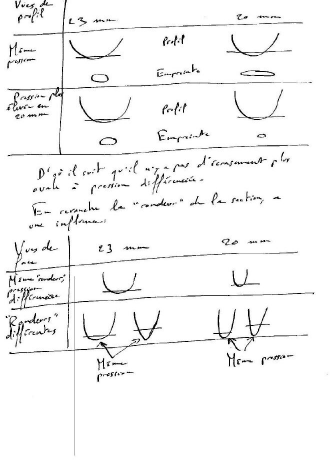 Vues de profil 23 mm 20 mm
Même pression Profil
Empreinte
Pression plus élevée en 20 mm Profil
Empreinte
D'où il suit qu'il n'y a pas d'écrasement plus
ovale à pression différenciée.
En revanche la "rondeur" de la section, a
une influence.
Vues de face 23 mm 20 mm
Même "rondeur" pression différenciée
"Rondeurs" différentes
Même pression Même pression